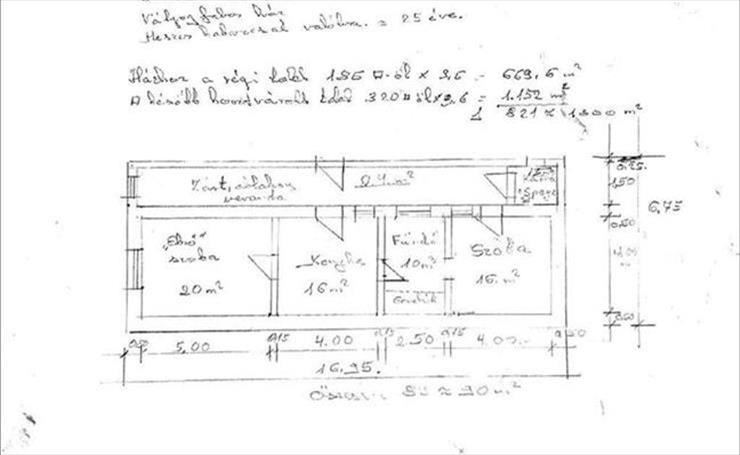 Vályogfalas ház
Meszes habarccsal vakolva. = 25 éve.
Házhoz a régi telek 186 □-öl × 3,6 = 669,6 m²
A később hozzávásárolt telek 320 □öl × 3,6 = 1.152 m²
1 821 ≈ 1800 m²
Zárt, oldalsó veranda
"Első" szoba
20 m²
Konyha
16 m²
Fürdő
10 m²
Szoba
16 m²
Kamra
Spájz
0,25
1,50
0,50
4,00
0,50
6,75
0,50 5.00 0,15 4.00 0,15 2.50 0,15 4.00 0,50
16,95.
≈ 90 m²